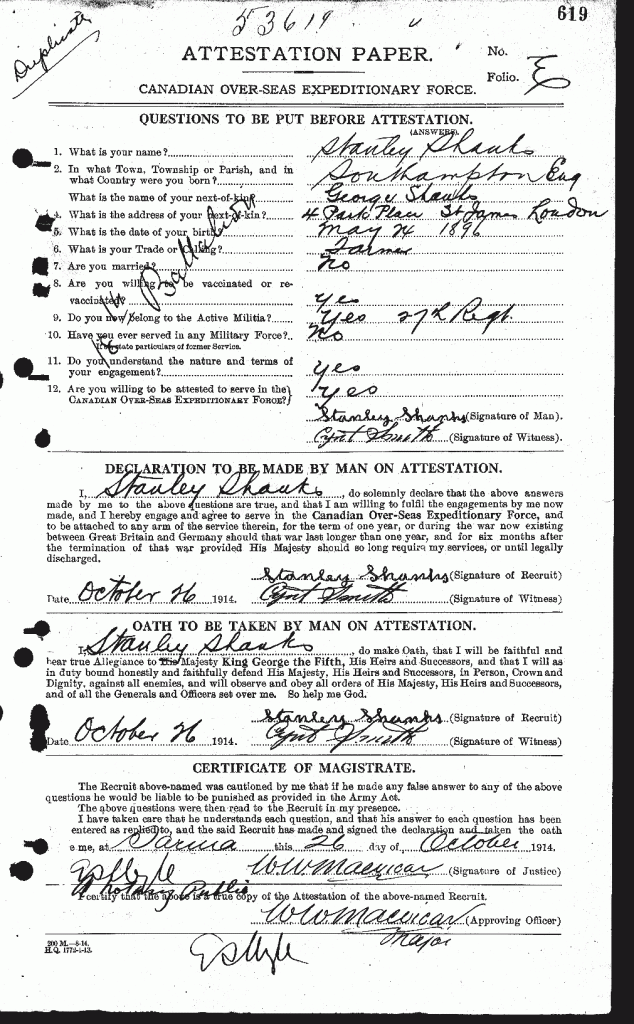 53619
619
Duplicate
ATTESTATION PAPER.
No.
Folio. E
CANADIAN OVER-SEAS EXPEDITIONARY FORCE.
QUESTIONS TO BE PUT BEFORE ATTESTATION.
(ANSWERS).
1. What is your name? Stanley Shanks
2. In what Town, Township or Parish, and in
what Country were you born? Southampton Eng
What is the name of your next-of-kin? George Shanks
4. What is the address of your next-of-kin? 4 Park Place St James London
5. What is the date of your birth? May 24 1896
6. What is your Trade or Calling? Farmer
7. Are you married? No
8. Are you willing to be vaccinated or re-
vaccinated? Yes
9. Do you now belong to the Active Militia? Yes 27th Regt.
10. Have you ever served in any Military Force? No
If so, state particulars of former Service.
11. Do you understand the nature and terms of
your engagement? Yes
12. Are you willing to be attested to serve in the
CANADIAN OVER-SEAS EXPEDITIONARY FORCE? Yes
18th Battalion
Stanley Shanks (Signature of Man).
Smith (Signature of Witness).
DECLARATION TO BE MADE BY MAN ON ATTESTATION.
I, Stanley Shanks, do solemnly declare that the above answers
made by me to the above questions are true, and that I am willing to fulfil the engagements by me now
made, and I hereby engage and agree to serve in the Canadian Over-Seas Expeditionary Force, and
to be attached to any arm of the service therein, for the term of one year, or during the war now existing
between Great Britain and Germany should that war last longer than one year, and for six months after
the termination of that war provided His Majesty should so long require my services, or until legally
discharged.
Stanley Shanks (Signature of Recruit)
Date October 26 1914. Smith (Signature of Witness)
OATH TO BE TAKEN BY MAN ON ATTESTATION.
I, Stanley Shanks, do make Oath, that I will be faithful and
bear true Allegiance to His Majesty King George the Fifth, His Heirs and Successors, and that I will as
in duty bound honestly and faithfully defend His Majesty, His Heirs and Successors, in Person, Crown and
Dignity, against all enemies, and will observe and obey all orders of His Majesty, His Heirs and Successors,
and of all the Generals and Officers set over me. So help me God.
Stanley Shanks (Signature of Recruit)
Date October 26 1914. Smith (Signature of Witness)
CERTIFICATE OF MAGISTRATE.
The Recruit above-named was cautioned by me that if he made any false answer to any of the above
questions he would be liable to be punished as provided in the Army Act.
The above questions were then read to the Recruit in my presence.
I have taken care that he understands each question, and that his answer to each question has been
entered as replied to, and the said Recruit has made and signed the declaration and taken the oath
e me, at Sarnia this 26 day of October 1914.
W. W. Macvicar (Signature of Justice)
A Notary Public
I certify that the above is a true copy of the Attestation of the above-named Recruit.
W. W. Macvicar (Approving Officer)
Major
200 M.—8-14.
H.Q. 1772-1-13.